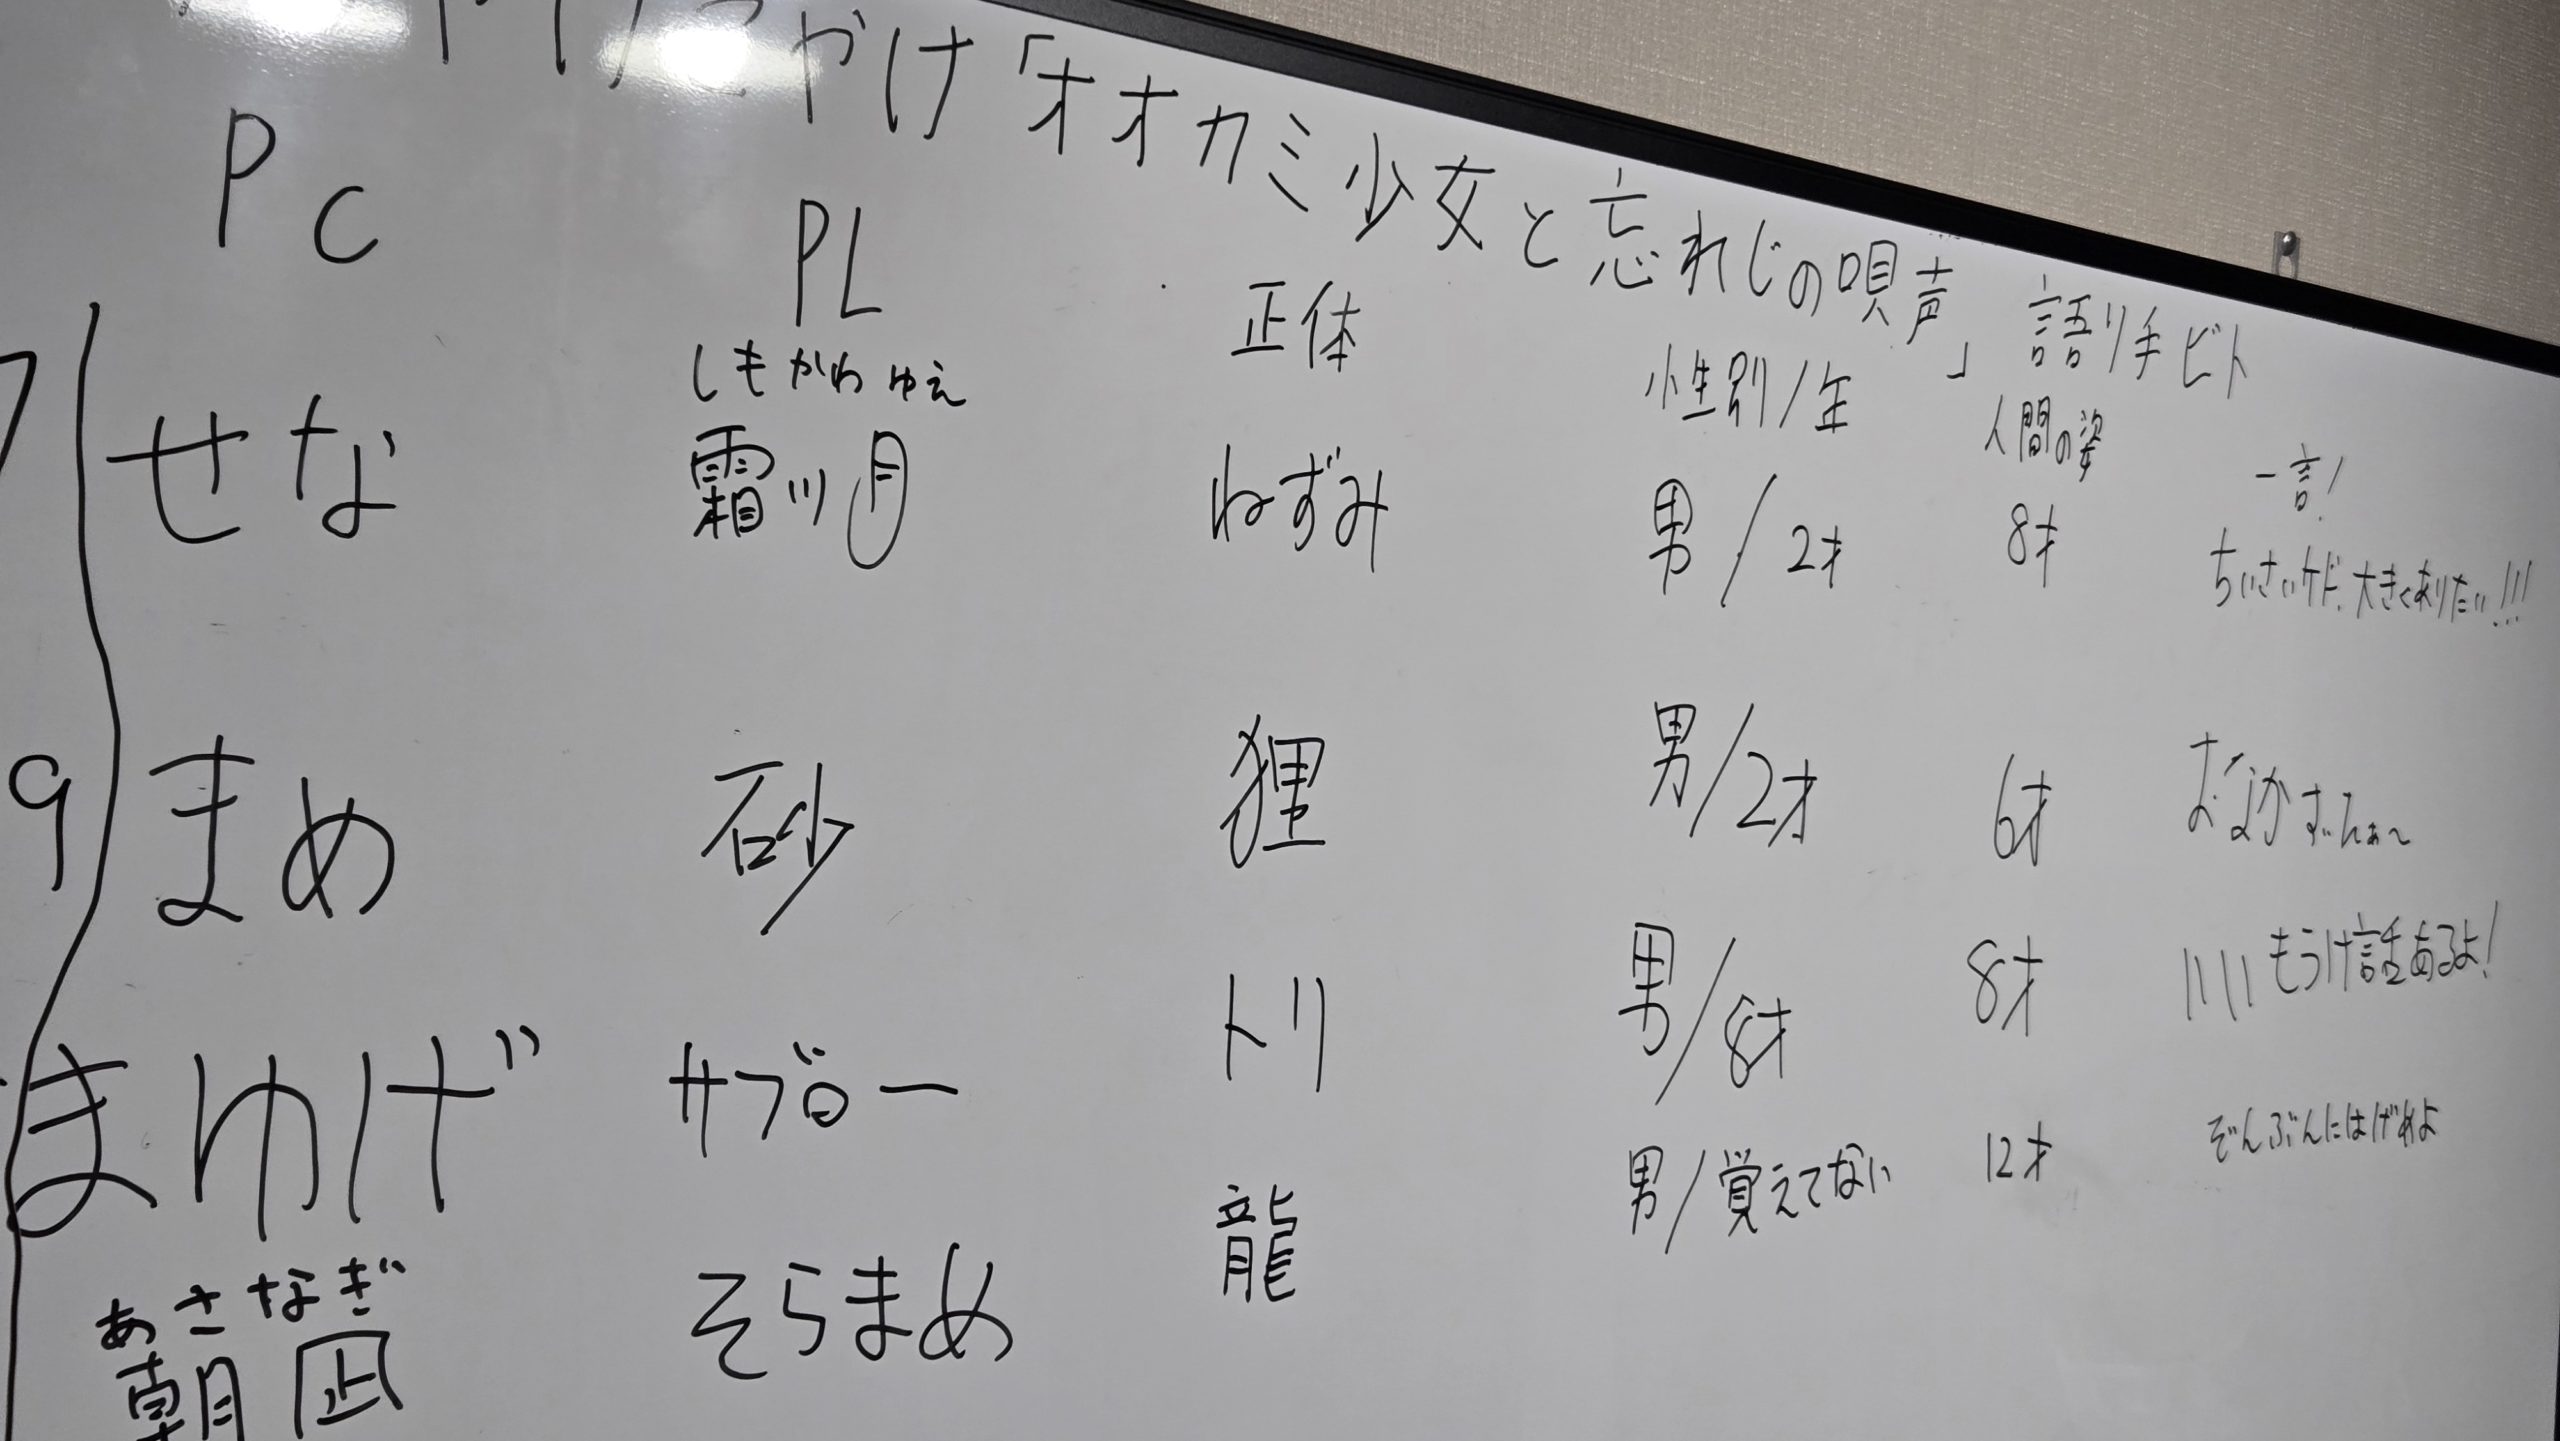 こやけ「オオカミ少女と忘れじの唄声」語り手ビト
PC PL 正体 性別/年 人間の姿 一言!
しもかわゆえ
せな 霜川月 ねずみ 男/2才 8才 ちいさいケド、大きくありたい!!!
9 まめ 砂 狸 男/2才 6才 おなかすいたぁ〜
まゆげ サブロー トリ 男/8才 8才 いいもうけ話あるよ!
あさなぎ
朝凪 そらまめ 龍 男/覚えてない 12才 ぞんぶんにはげめよ